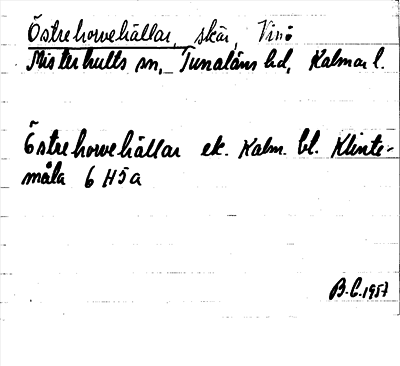 Östrehovehällar, skär, Vinö
Misterhults sn, Tunaläns hd, Kalmar l.
Östrehovehällar ek. Kalm. bl. Klinte-
måla 6 H5a
B.C. 1957